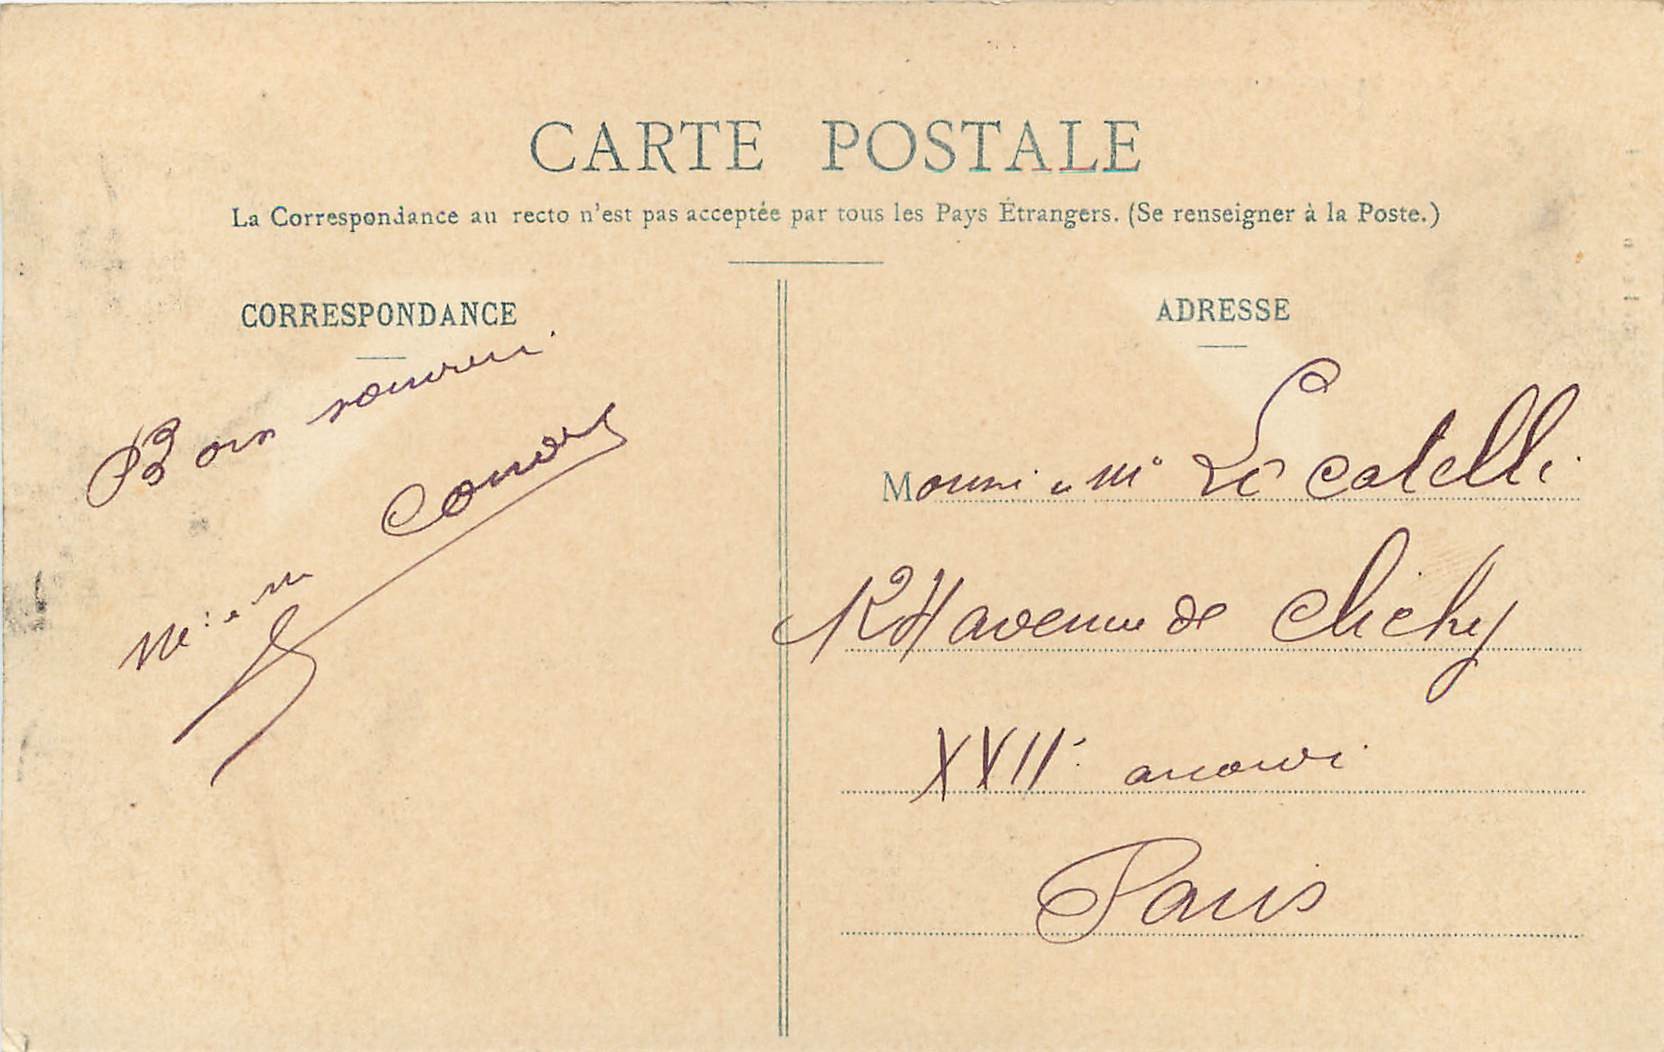 CARTE POSTALE
La Correspondance au recto n'est pas acceptée par tous les Pays Étrangers. (Se renseigner à la Poste.)
CORRESPONDANCE
Bon souvenir
ADRESSE
M Locatelli
124 avenue de Clichy
XVII
Paris